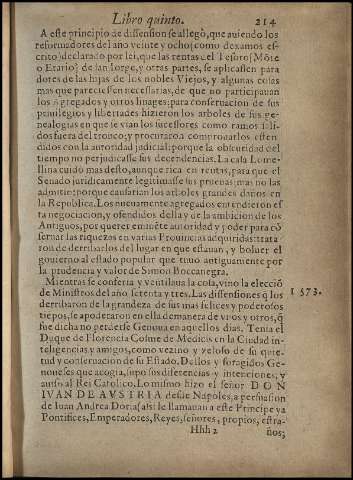 Libro quinto. 214
A este principio de dissension se allegò, que auiendo los
reformadores del año veinte y ocho (como dexamos es-
crito) declarado por lei, que las rentas del Tesoro (Mõte
o Etario) de san Iorge, y otras partes, se aplicassen para
dotes de las hijas de los nobles Viejos, y algunas cosas
mas que pareciessen necessarias, de que no participauan
los Agregados y otros linages: para conseruacion de sus
priuilegios y libertades hizieron arboles de sus ge-
nealogias en que se vian los sucessores como ramos sali-
dos fuera del tronco; y procuraron comprouarlos esten-
didos con la autoridad judicial: porque la obscuridad del
tiempo no perjudicasse sus decendencias. La casa Lome-
llina cuidò mas desto, aunque rica en rentas, para que el
Senado juridicamente legitimasse sus prueuas; mas no las
admitiò; porque causarian los arboles grandes daños en
la Republica. Los nueuamente agregados entendieron es-
ta negociacion, y ofendidos della y de la ambicion de los
Antiguos, por querer eminẽte autoridad y poder para cõ
sernar las riquezas en varias Prouincias adquiridas: trata
ron de derribarlos del lugar en que estauan, y boluer el
gouierno al estado popular que tuuo antiguamente por
la prudencia y valor de Simon Boccanegra.
Mientras se conferia y ventilaua la cosa, vino la elecciõ
de Ministros del año setenta y tres. Las dissensiones q̃ los
1573.
derribaron de la grandeza de sus mas felices y poderosos
tiepos, se apoderaron en ella demanera de vnos y otros, q̃
fue dicha no perderse Genoua en aquellos dias. Tenia el
Duque de Florencia Cosme de Medicis en la Ciudad in-
teligencias y amigos, como vezino y zeloso de su quie-
tud y conseruacion de su Estado. Dellos y foragidos Ge-
noueses que acogia, supo sus diferencias y intenciones; y
auisò al Rei Catolico. Lo mismo hizo el señor DON
IVAN DE AVSTRIA desde Napoles, a persuasion
de Iuan Andrea Doria (assi le llamauan a este Principe va
Pontifices, Emperadores, Reyes, señores, propios, estra-
Hhh 2 ños;